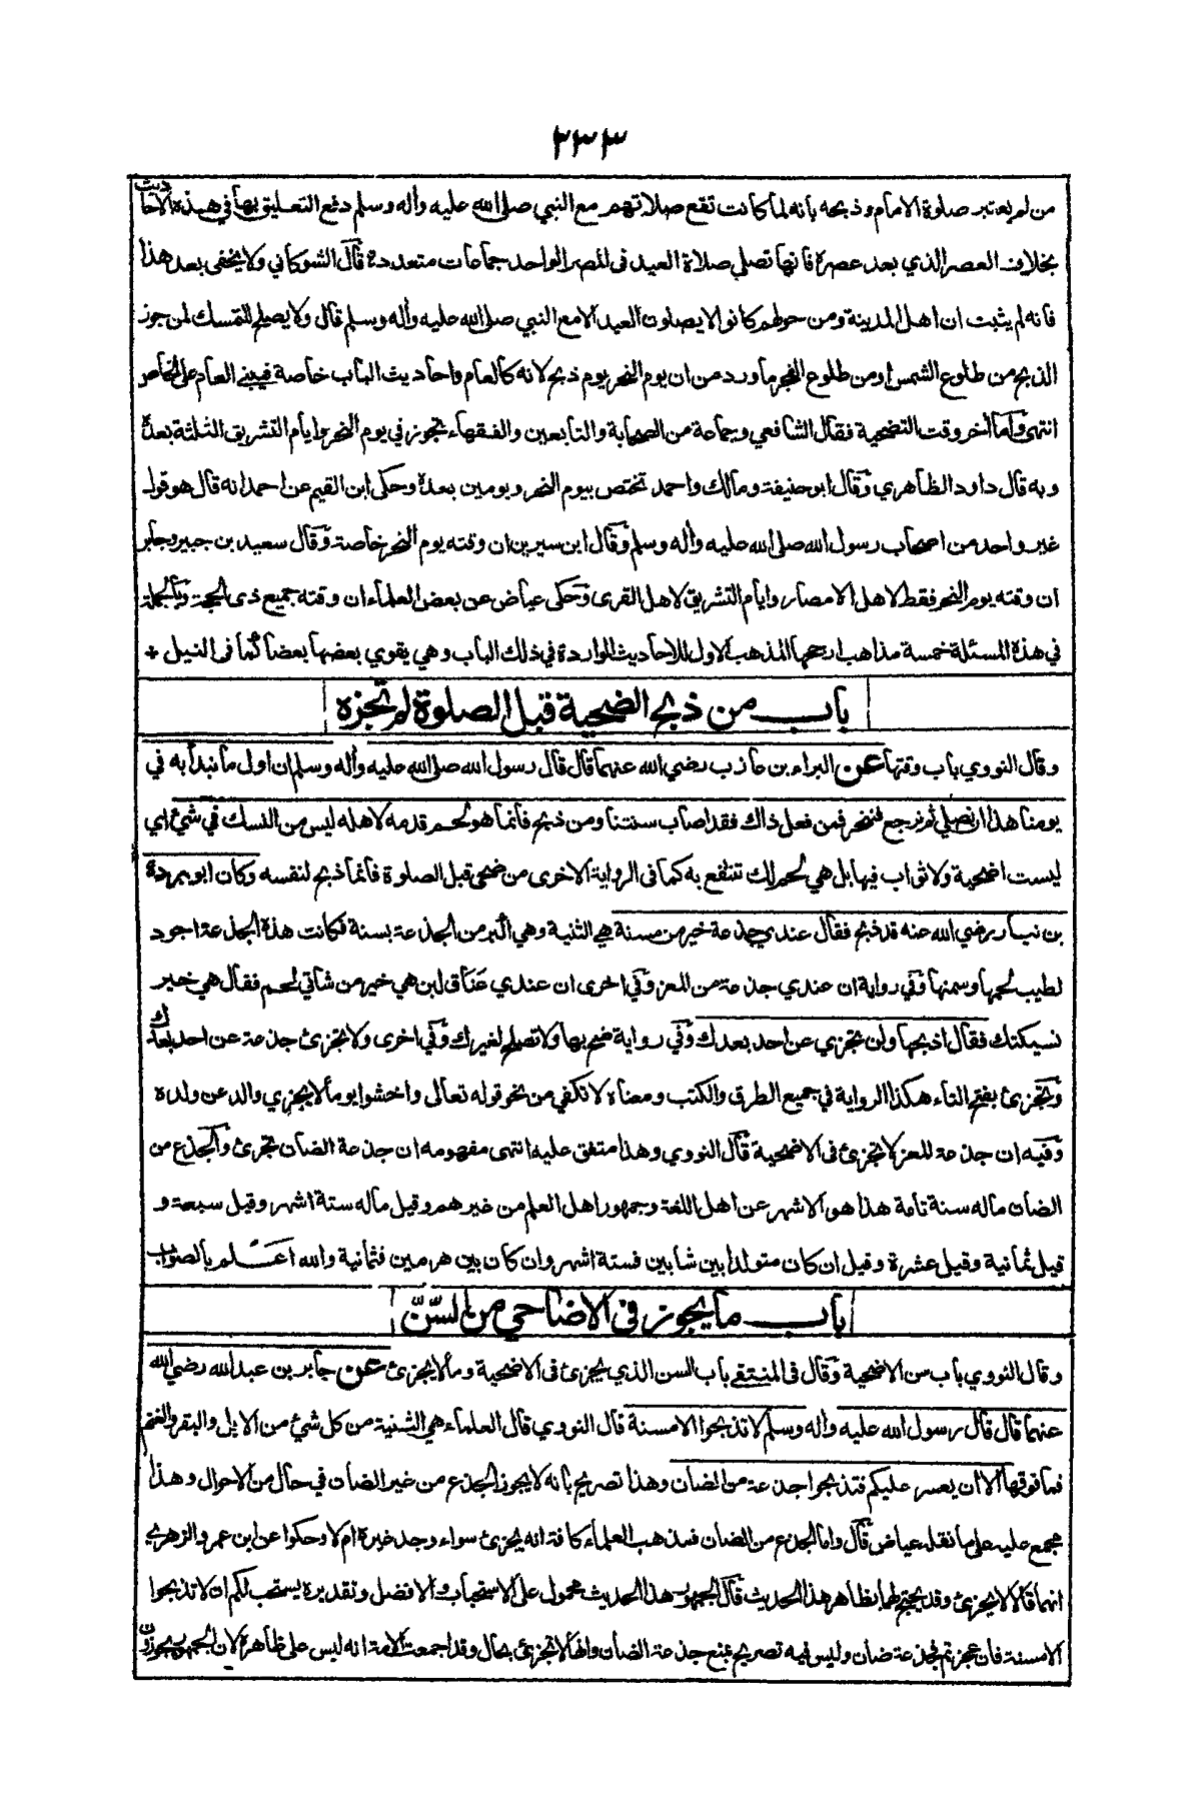 ٢٣٣
من لم يعتبر صلوة الامام وذبحه بانه لما كانت تقع صلاتهم مع النبي صلى الله عليه وأله وسلم دفع التعليق بها في هذه الاحاديث
بخلاف العصر الذي بعد عصره فانها تصلي صلاة العيد فى المصر الواحد جماعات متعددة قال الشوكاني ولا يخفى بعد هذا
فانه لم يثبت ان اهل المدينة ومن حولهم كانوا لا يصلون العيد الا مع النبي صلى الله عليه وأله وسلم قال ولا يصلح للتمسك لمن جوز
الذبح من طلوع الشمس او من طلوع الفجر ما ورد من ان يوم النحر يوم ذبح لانه كالعام واحاديث الباب خاصة فيبنى العام على الخاص
انتهى واما أخر وقت التضحية فقال الشافعي وجماعة من الصحابة والتابعين والفقهاء تجوز في يوم النحر وايام التشريق الثلثة بعده
وبه قال داود الظاهري وقال ابو حنيفة ومالك واحمد تختص بيوم النحر ويومين بعدة وحكى ابن القيم عن احمد انه قال هو قول
غير واحد من اصحاب رسول الله صلى الله عليه وأله وسلم وقال ابن سيرين ان وقته يوم النحر خاصة وقال سعيد بن جبير وجابر
ان وقته يوم النحر فقط لاهل الامصار وايام التشريق لاهل القرى وحكى عياض عن بعض العلماء ان وقته جميع ذى الحجة وبالجملة
في هذة المسئلة خمسة مذاهب ارجحها المذهب الاول للاحاديث الواردة في ذلك الباب وهي يقوي بعضها بعضا كما فى النيل +
باب من ذبح الضحية قبل الصلوة لم تجزه
وقال النووي باب وقتها عن البراء بن عازب رضي الله عنهما قال قال رسول الله صلى الله عليه وأله وسلم ان اول ما نبدأ به في
يومنا هذا ان نصلي ثم نرجع فننحر فمن فعل ذلك فقد اصاب سنتنا ومن ذبح فانما هو لحم قدمه لاهله ليس من النسك في شئ اي
ليست اضحية ولا ثواب فيها بل هي لحم لك تنتفع به كما فى الرواية الاخرى من ضحى قبل الصلوة فانما ذبح لنفسه وكان ابو بردة
بن نيار رضي الله عنه قد ذبح فقال عندي جذعة خير من مسنة هي الثنية وهي اكبر من الجذعة بسنة فكانت هذة الجذعة اجود
لطيب لحمها وسمنها وفي رواية ان عندي جذعة من المعز وفي اخرى ان عندي عناق لبن هي خير من شاتي لحم فقال هي خير
نسيكتك فقال اذبحها ولن تجزي عن احد بعدك وفي رواية ضح بها ولا تصلح لغيرك وفي اخرى ولا تجزئ جذعة عن احد بعدك
وتجزئ بفتح التاء هكذا الرواية في جميع الطرق والكتب ومعناه لا تكفي من نحو قوله تعالى واخشوا يوما لا يجزي والد عن ولده
وفيه ان جذعة المعز لا تجزئ فى الاضحية قال النووي وهذا متفق عليه انتهى مفهومه ان جذعة الضان تجزئ والجذع من
الضان ماله سنة تامة هذا هو الاشهر عن اهل اللغة وجمهور اهل العلم من غيرهم وقيل ماله ستة اشهر وقيل سبعة و
قيل ثمانية وقيل عشرة وقيل ان كان متولدا بين شابين فستة اشهر وان كان بين هرمين فثمانية والله اعلم بالصواب
باب ما يجوز فى الاضاحي من السّنّ
وقال النووي باب سن الاضحية وقال فى المنتقى باب السن الذي يجزئ فى الاضحية وما لا يجزئ عن جابر بن عبد الله رضي الله
عنهما قال قال رسول الله عليه وأله وسلم لا تذبحوا الا مسنة قال النووي قال العلماء هي الثنية من كل شئ من الابل والبقر والغنم
فما فوقها الا ان يعسر عليكم فتذبحوا جذعة من الضان وهذا تصريح بانه لا يجوز الجذع من غير الضان في حال من الاحوال وهذا
مجمع عليه على ما نقله عياض قال واما الجذع من الضان فمذهب العلماء كافة انه يجزئ سواء وجد غيره ام لا وحكوا عن ابن عمر والزهري
انهما قالا لا يجزئ وقد يحتج لهما بظاهر هذا الحديث قال الجمهور هذا الحديث محمول على الاستحباب والافضل وتقديره يستحب لكم ان لا تذبحوا
الا مسنة فان عجزتم فجذعة ضان وليس فيه تصريح بمنع جذعة الضان وانها لا تجزئ بحال وقد اجمعت الامة انه ليس على ظاهره لان الجمهور يجوزون